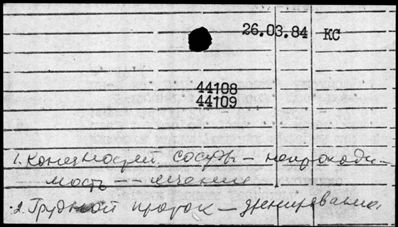 26.03.84 КС
44108
44109
1. Конечностей сосуды – непроходи-
мость – – лечение
2. Грудной проток – дренирование